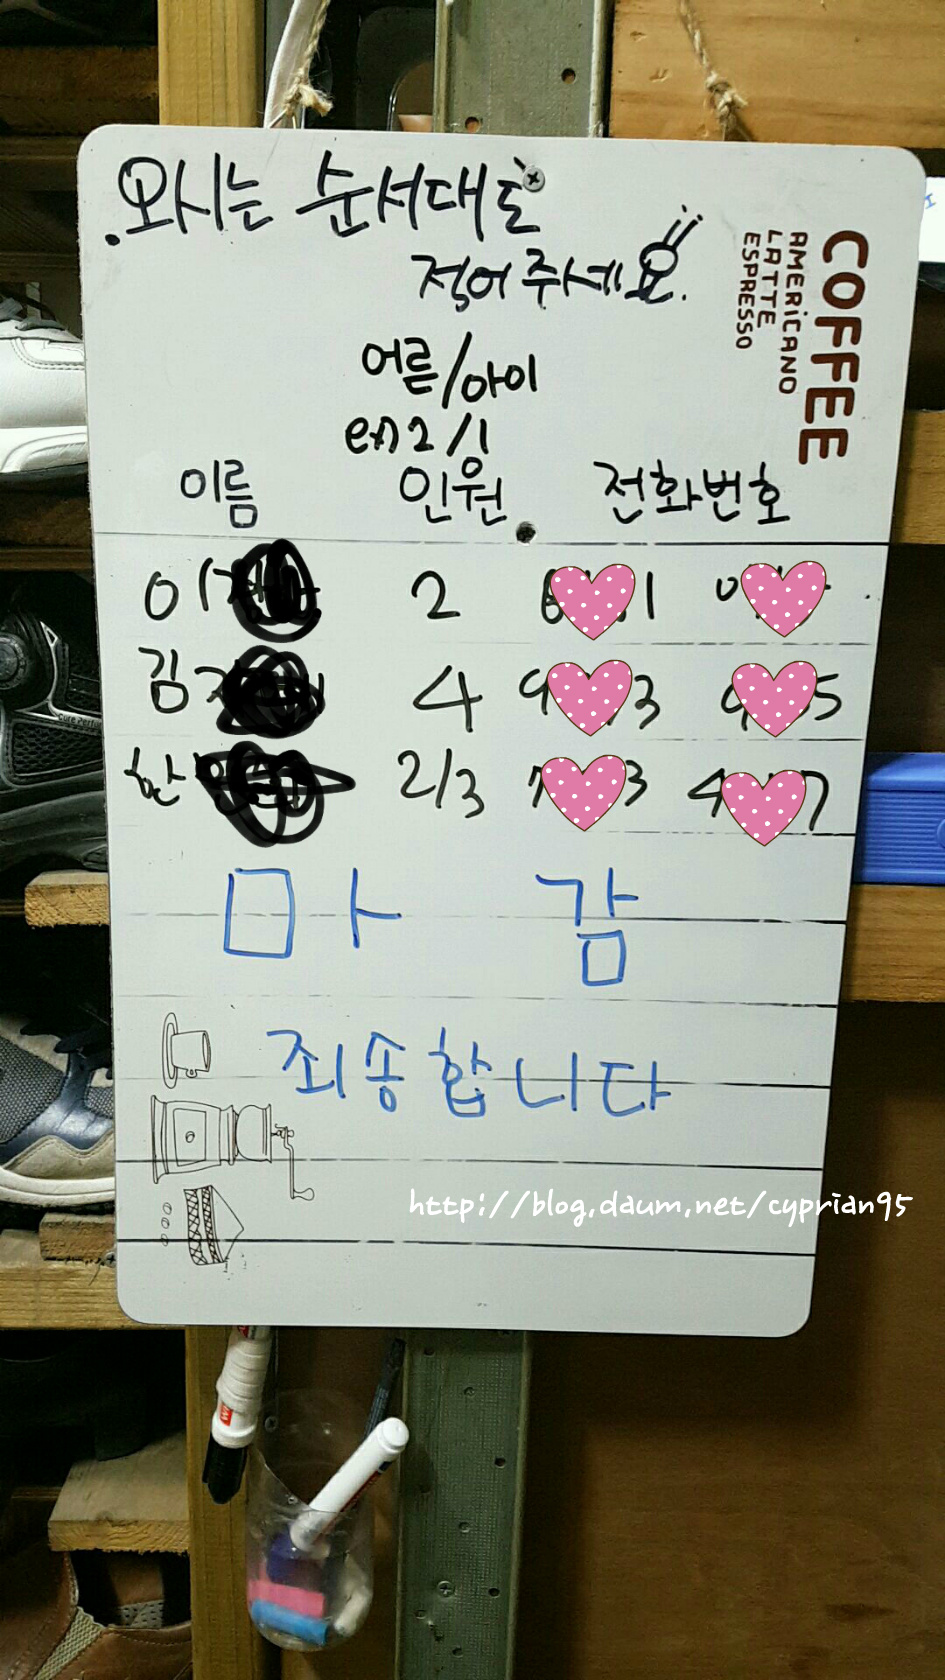 오시는 순서대로
적어주세요.
어른/아이
ex) 2/1
이름 인원 전화번호
이 2 1
김 4 9 3 9 5
한 2/3 3 4 7
마 감
죄송합니다
COFFEE
AMERICANO
LATTE
ESPRESSO
http://blog.daum.net/cyprian95